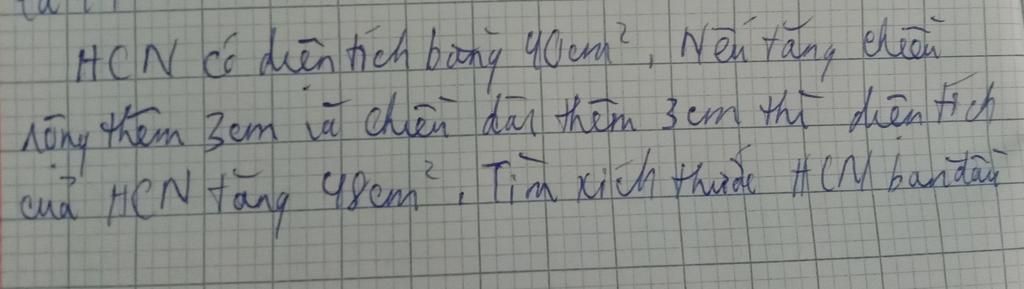 HCN có diện tích bằng 40cm², Nếu tăng chiều
rộng thêm 3cm và chiều dài thêm 3cm thì diện tích
của HCN tăng 48cm². Tìm kích thước HCN ban đầu